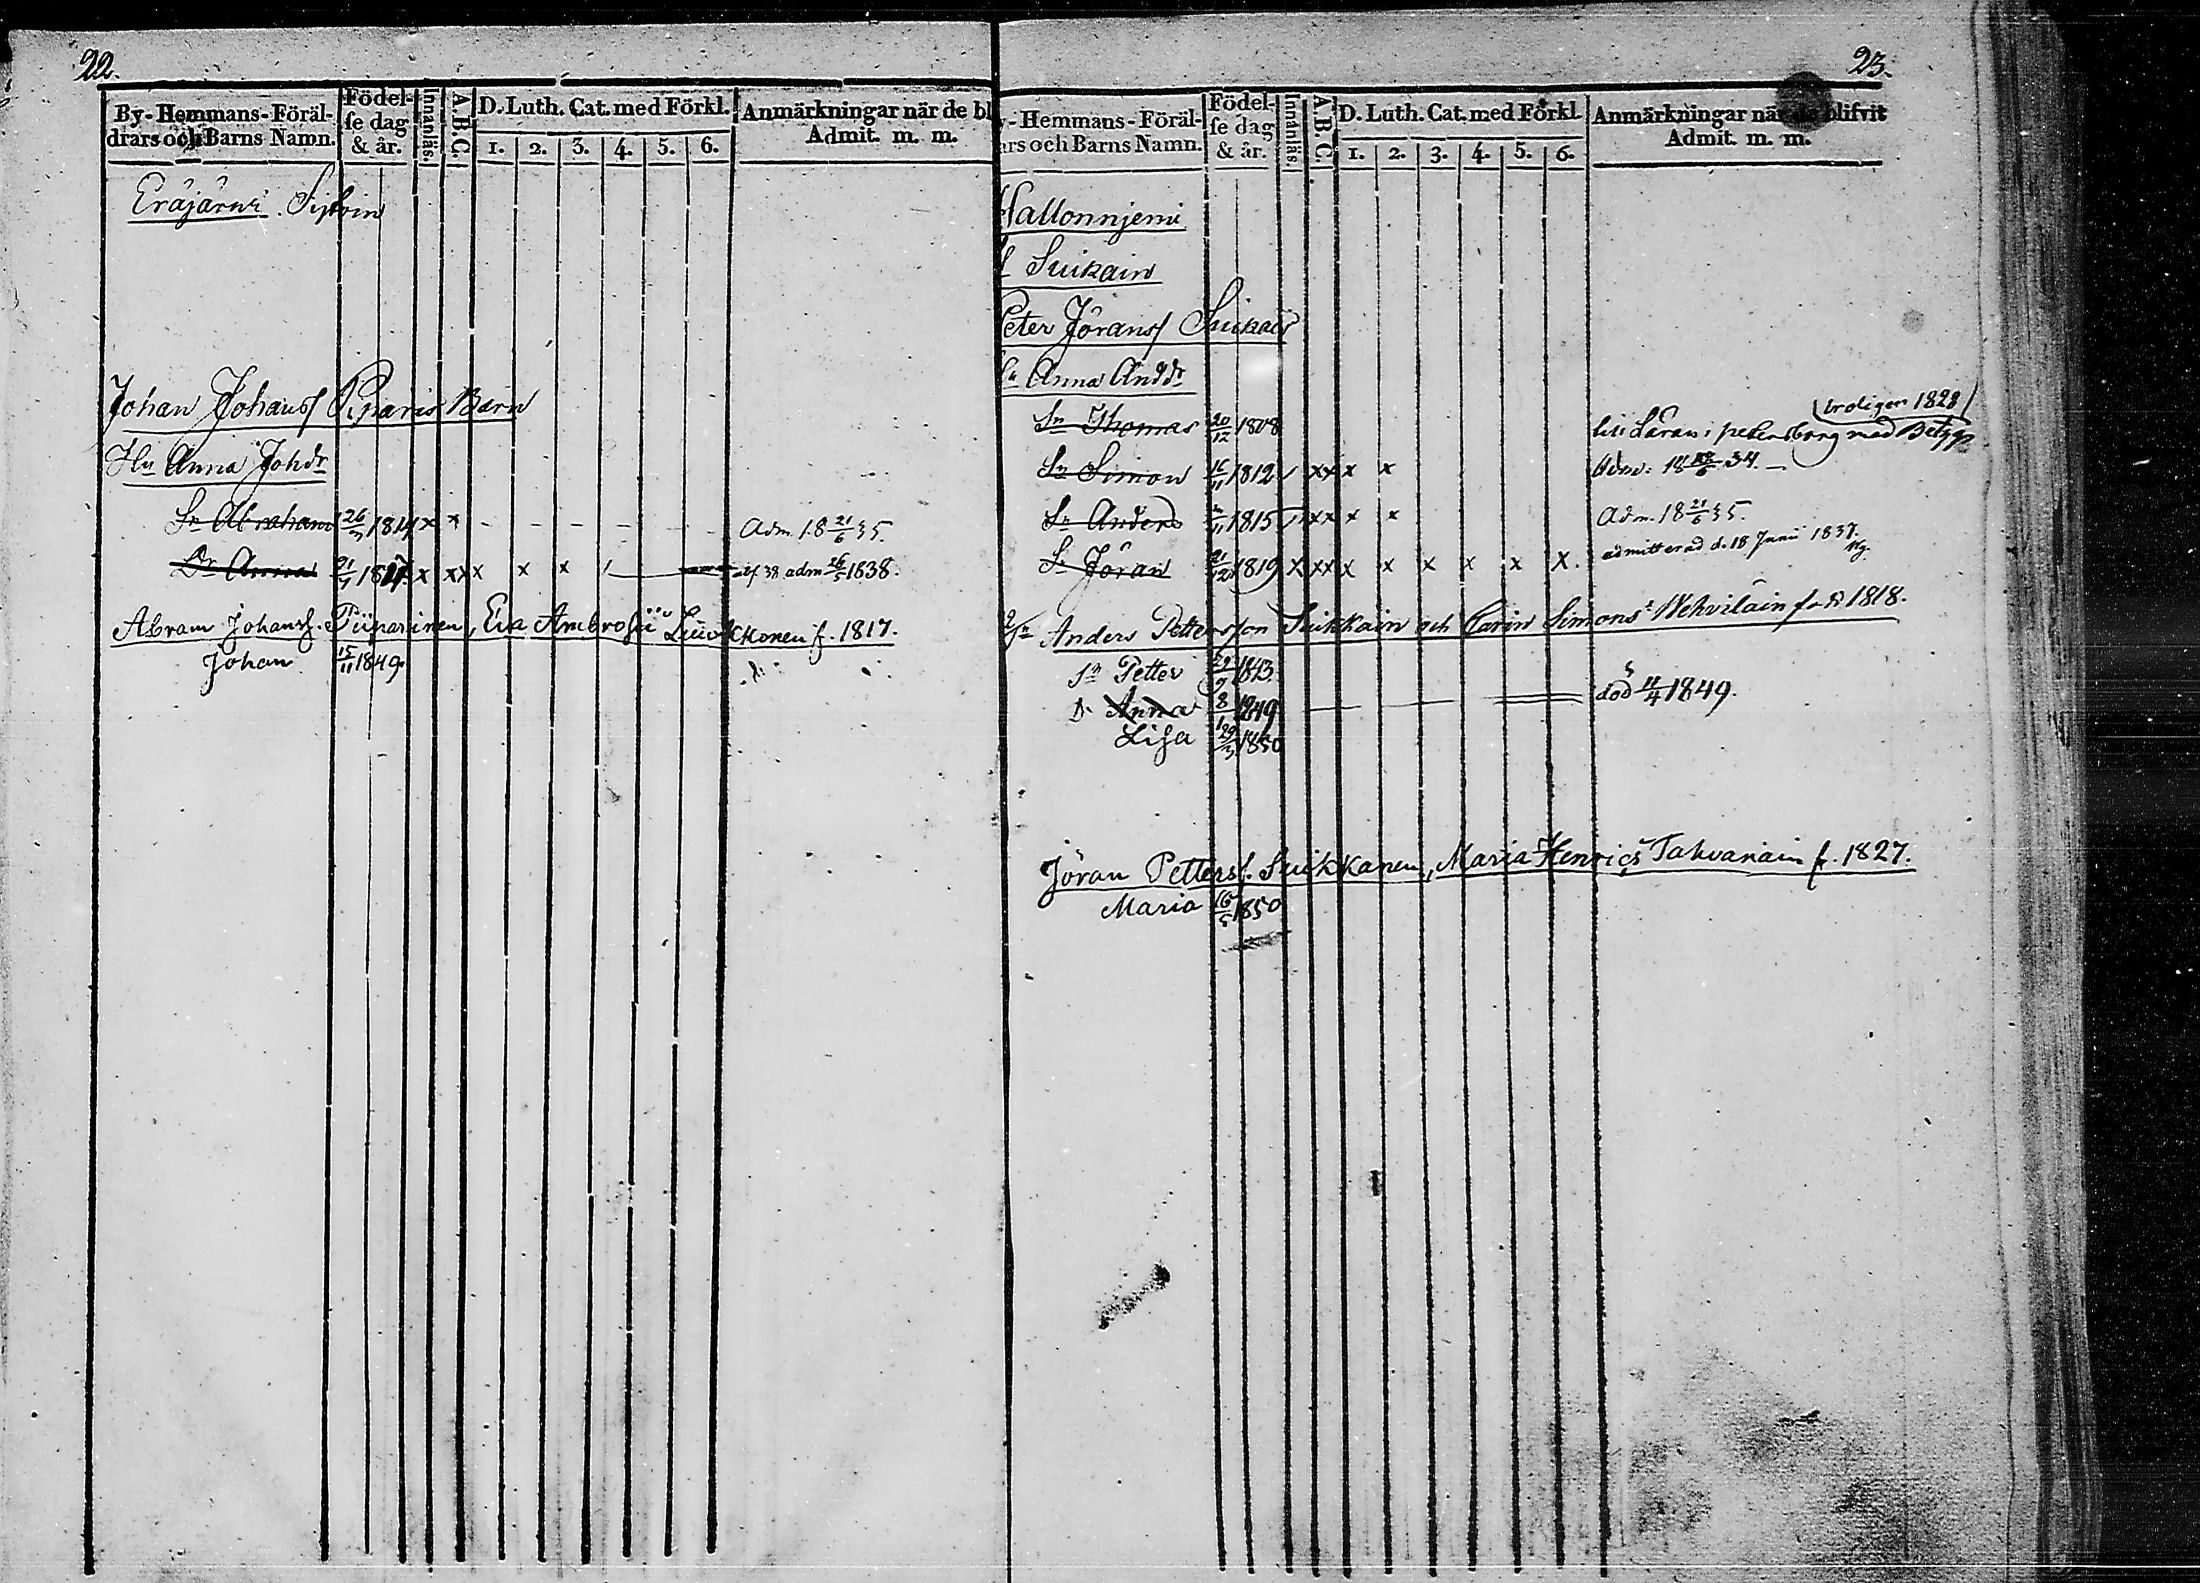 22.
By-Hemmans-Föräldrars och Barns Namn. Födelse dag & år. Innanläs. A.B.C. D. Luth. Cat. med Förkl. 1. 2. 3. 4. 5. 6. Anmärkningar när de bl Admit. m. m.
Eräjärwi
Johan Johansſ Barn
Hu Anna Johdr
Sn Abraham 26/3 1814 x x - - - - - - Adm. 18 21/6 35.
Dr Anna 21/1 x xx x x x 38 adm 26/5 1838.
Abram Johansſ. Piiparinen, Eva Ambroſii Liiukkonen f. 1817.
Johan 15/11 1849.
23.
y-Hemmans-Föräl-ars och Barns Namn. Födelſe dag & år. Innanläs. A.B.C. D. Luth. Cat. med Förkl. 1. 2. 3. 4. 5. 6. Anmärkningar när de blifvit Admit. m. m.
Hallonnjemi
Suikain
Peter Jöransſ Suikain
Hu Anna Anddr
troligen 1828
Sn Thomas 20/12 1808 i petersborg med
Sn Simon 16/11 1812 xx x x Adm. 18 34.
Sn Anders 1815 xx x x Adm. 18 21/6 35.
Sn Jöran 21/12 1819 x xx x x x x x x. admitterad d. 18 Junii 1837.
Anders Petterſſon Suikkain och Carin Simons: Wehviläin född 1818.
Sn Petter 29/9 1843.
Dr Anna 8/1 1849 död 11/4 1849.
Liſa 29/3 1850
Jöran Pettersſ. Suikkanen, Maria Henrics Tahvanain f. 1827.
Maria 16/5 1850